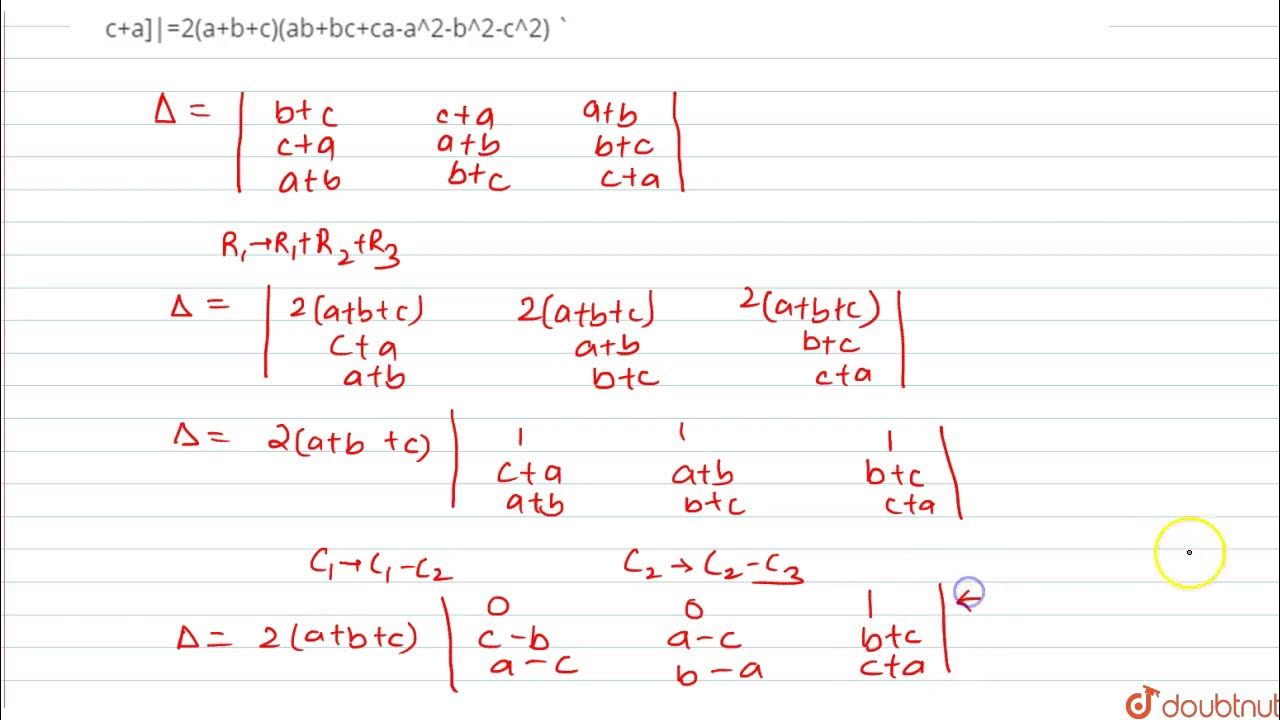 c+a]|=2(a+b+c)(ab+bc+ca-a^2-b^2-c^2) `
Δ = | b+c c+a a+b |
| c+a a+b b+c |
| a+b b+c c+a |
R₁→R₁+R₂+R₃
Δ = | 2(a+b+c) 2(a+b+c) 2(a+b+c) |
| c+a a+b b+c |
| a+b b+c c+a |
Δ = 2(a+b+c) | 1 1 1 |
| c+a a+b b+c |
| a+b b+c c+a |
C₁→C₁-C₂ C₂→C₂-C₃
| 0 0 1 | ←
Δ = 2(a+b+c) | c-b a-c b+c |
| a-c b-a c+a |
doubtnut